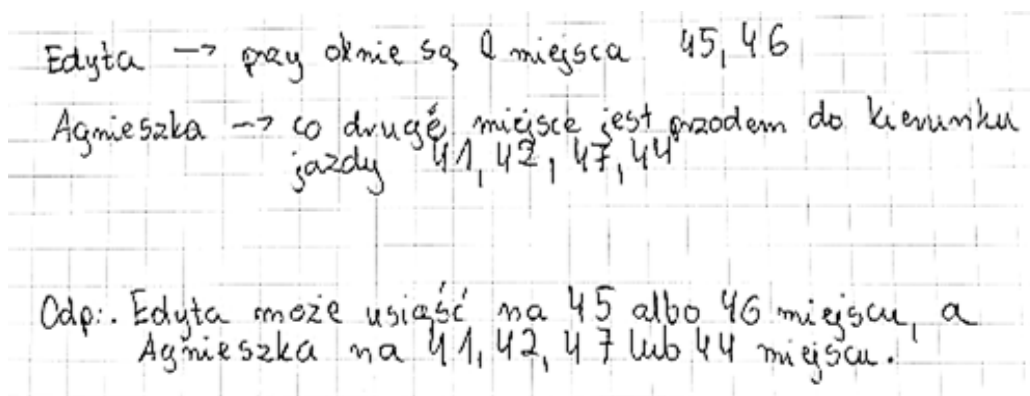 Edyta → przy oknie są 2 miejsca 45, 46
Agnieszka → co drugie miejsce jest przodem do kierunku
jazdy 41, 42, 47, 44
Odp.: Edyta może usiąść na 45 albo 46 miejscu, a
Agnieszka na 41, 42, 47 lub 44 miejscu.